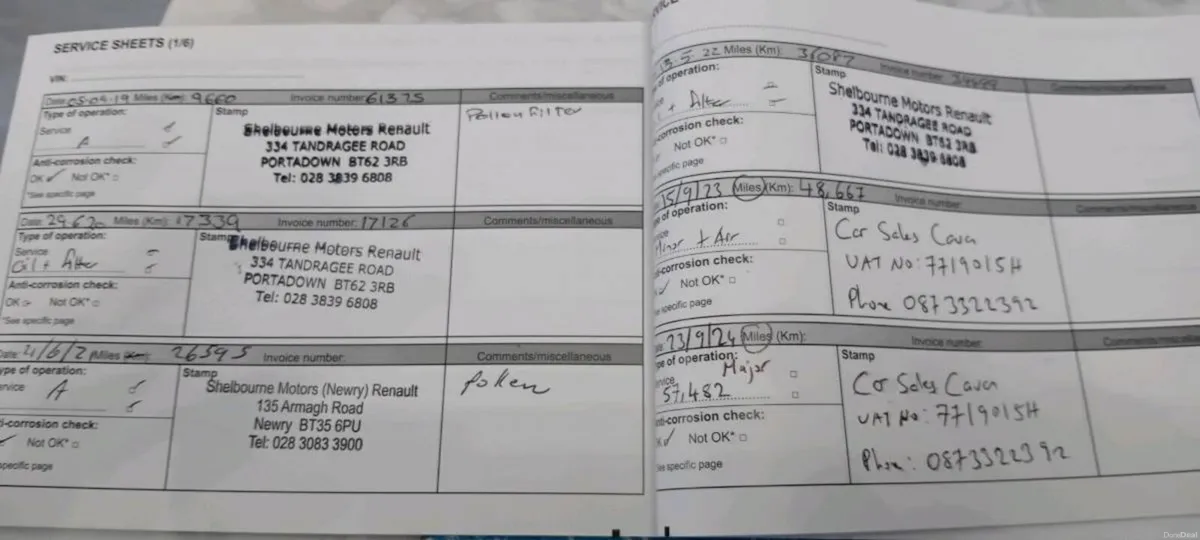 SERVICE SHEETS (1/6)
VIN:
Date: 05-04-19 Miles (Km): 9660 Invoice number: 61375 Comments/miscellaneous
Type of operation: Stamp Pollen Filter
Service
A
Shelbourne Motors Renault
334 TANDRAGEE ROAD
PORTADOWN BT62 3RB
Tel: 028 3839 6808
Anti-corrosion check:
OK ✓ Not OK*
*See specific page
Date: 29.6.20 Miles (Km): 17339 Invoice number: 17126 Comments/miscellaneous
Type of operation: Stamp
Service
Oil + filter
Shelbourne Motors Renault
334 TANDRAGEE ROAD
PORTADOWN BT62 3RB
Tel: 028 3839 6808
Anti-corrosion check:
OK Not OK*
*See specific page
Date: 21/6/21 Miles (Km): 26595 Invoice number: Comments/miscellaneous
ype of operation: Stamp Pollen
ervice
A
Shelbourne Motors (Newry) Renault
135 Armagh Road
Newry BT35 6PU
Tel: 028 3083 3900
i-corrosion check:
✓ Not OK*
specific page
13.5.22 Miles (Km): 36087 Invoice number
of operation: Stamp
+ filter
Shelbourne Motors Renault
334 TANDRAGEE ROAD
PORTADOWN BT62 3RB
Tel: 028 3839 6808
corrosion check:
Not OK*
specific page
15/9/23 Miles (Km): 48,667 Invoice number
of operation: Stamp
Minor + Air
Car Sales Cavan
VAT No: 7719015H
Phone 0873322392
corrosion check:
✓ Not OK*
specific page
23/9/24 Miles (Km): Invoice number Comments/miscellaneous
pe of operation: Stamp
Major
57,482
Car Sales Cavan
VAT No: 7719015H
Phone: 0873322392
ti-corrosion check:
✓ Not OK*
See specific page
DoneDeal